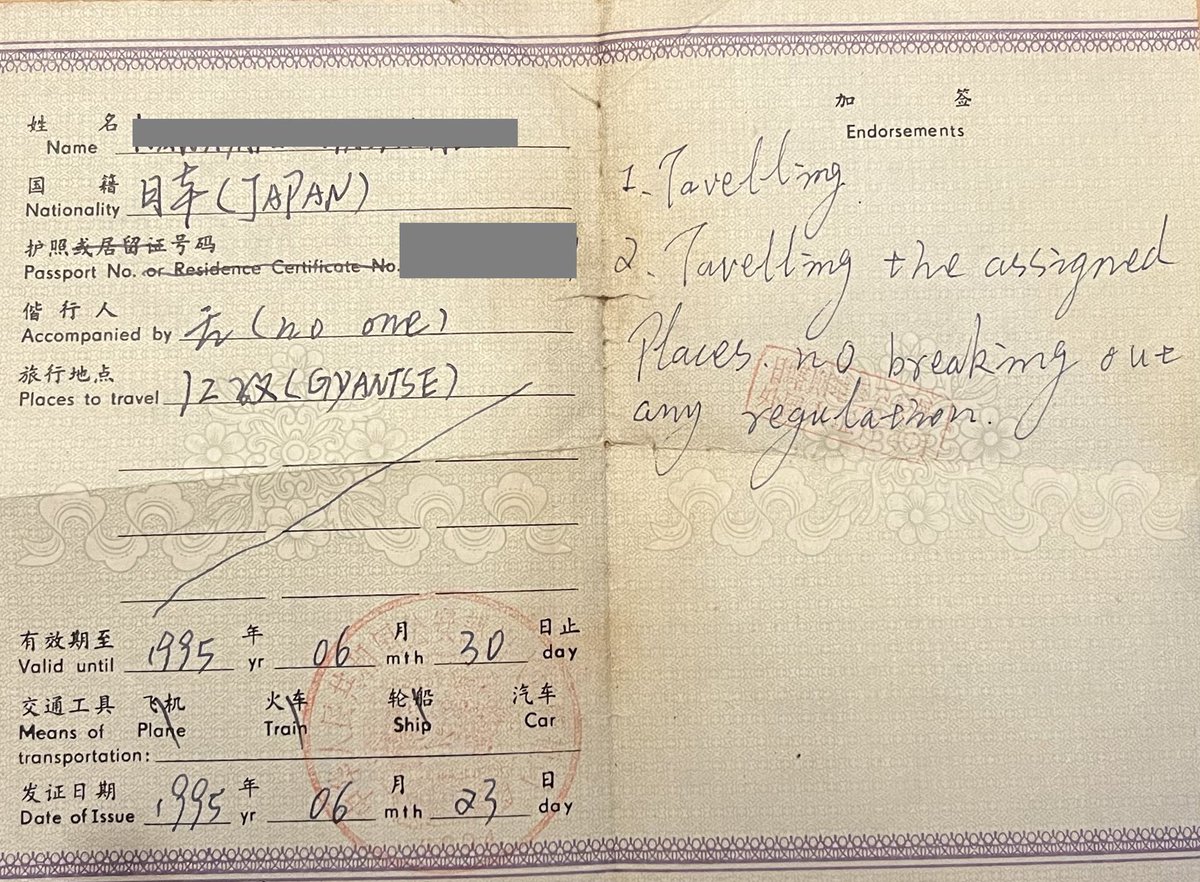 姓 名
Name
国 籍
Nationality 日本(JAPAN)
护照或居留证号码
Passport No. or Residence Certificate No.
偕行人
Accompanied by 无(no one)
旅行地点
Places to travel 江孜(GYANTSE)
有效期至 1995 年 06 月 30 日止
Valid until yr mth day
交通工具 飞机 火车 轮船 汽车
Means of Plane Train Ship Car
transportation:
发证日期 1995 年 06 月 23 日
Date of Issue yr mth day
加 签
Endorsements
1. Tavelling.
2. Tavelling the assigned
Places. no breaking out
any regulation.